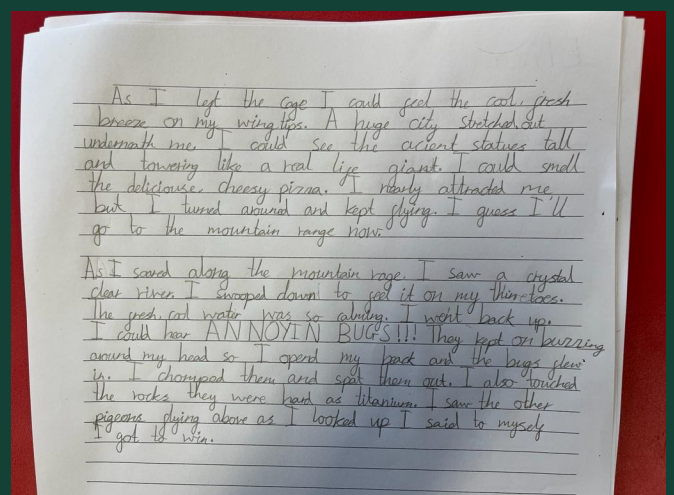 As I left the cage I could feel the cool, fresh
breeze on my wing tips. A huge city stretched out
underneath me. I could see the acient statues tall
and towering like a real life giant. I could smell
the deliciouse, cheesy pizza. I nearly attracted me
but I turned around and kept flying. I guess I'll
go to the mountain range now.
As I soared along the mountain rage. I saw a crystal
clear river. I swooped down to feel it on my thin toes.
The fresh, cool water was so calming. I went back up.
I could hear ANNOYIN BUGS!!! They kept on buzzing
around my head so I opend my beack and the bugs flew
in. I chomped them and spat them out. I also touched
the rocks they were hard as titanium. I saw the other
pigeons flying above as I looked up I said to myself
I got to win.